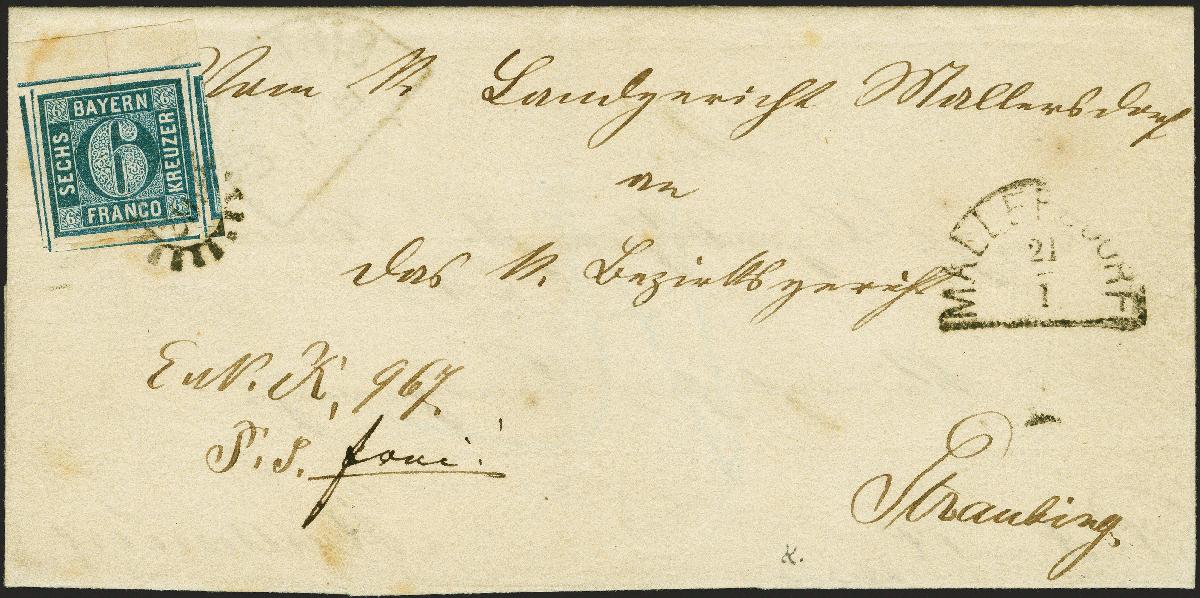 BAYERN
SECHS
6
KREUZER
FRANCO
6 6 6 6
Vom K. Landgericht Mallersdorf
an
das K. Bezirksgericht
MALLERSDORF
21
1
K, 967.
Straubing.